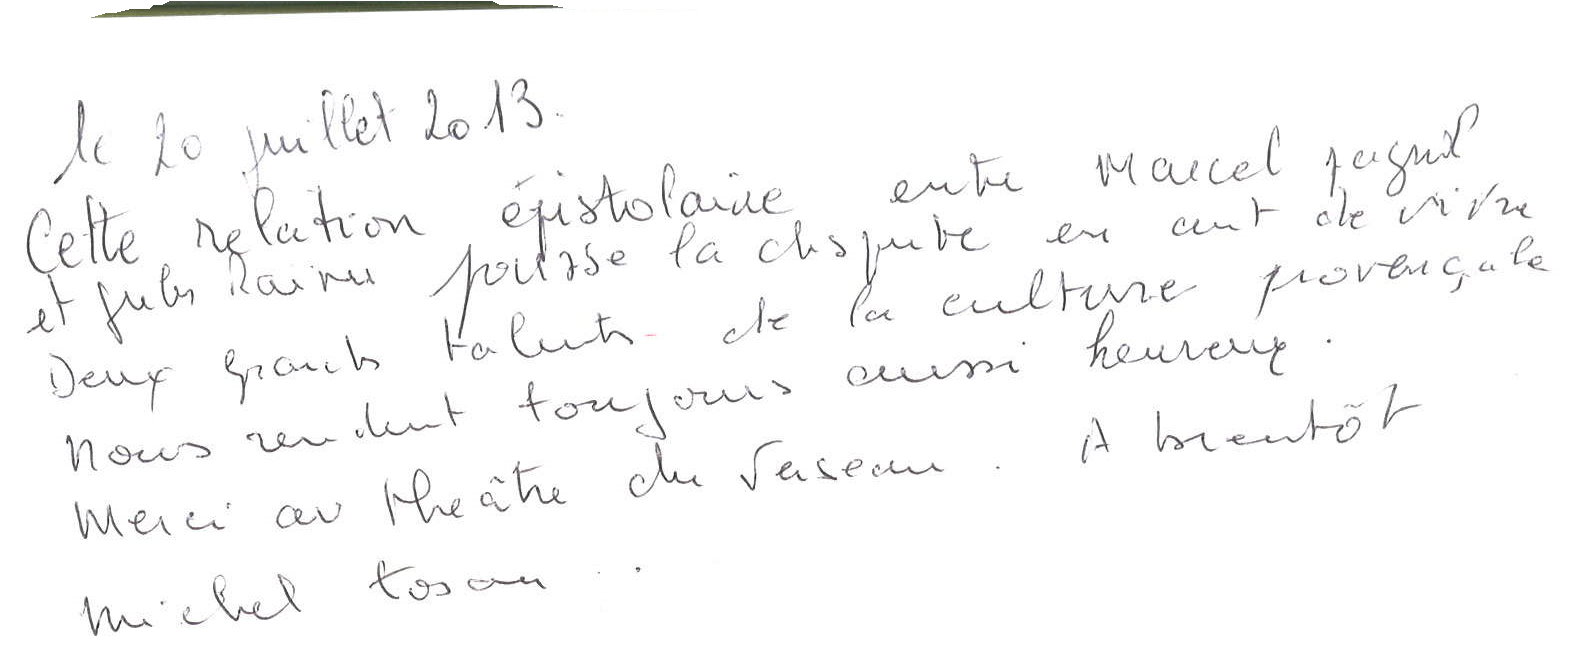 le 20 juillet 2013.
Cette relation épistolaire entre Marcel pagnol
et Jules Raimu pousse la dispute en art de vivre
Deux grands talents de la culture provençale
Nous rendent toujours aussi heureux.
Merci au théâtre du Verseau. A bientôt
Michel tosan